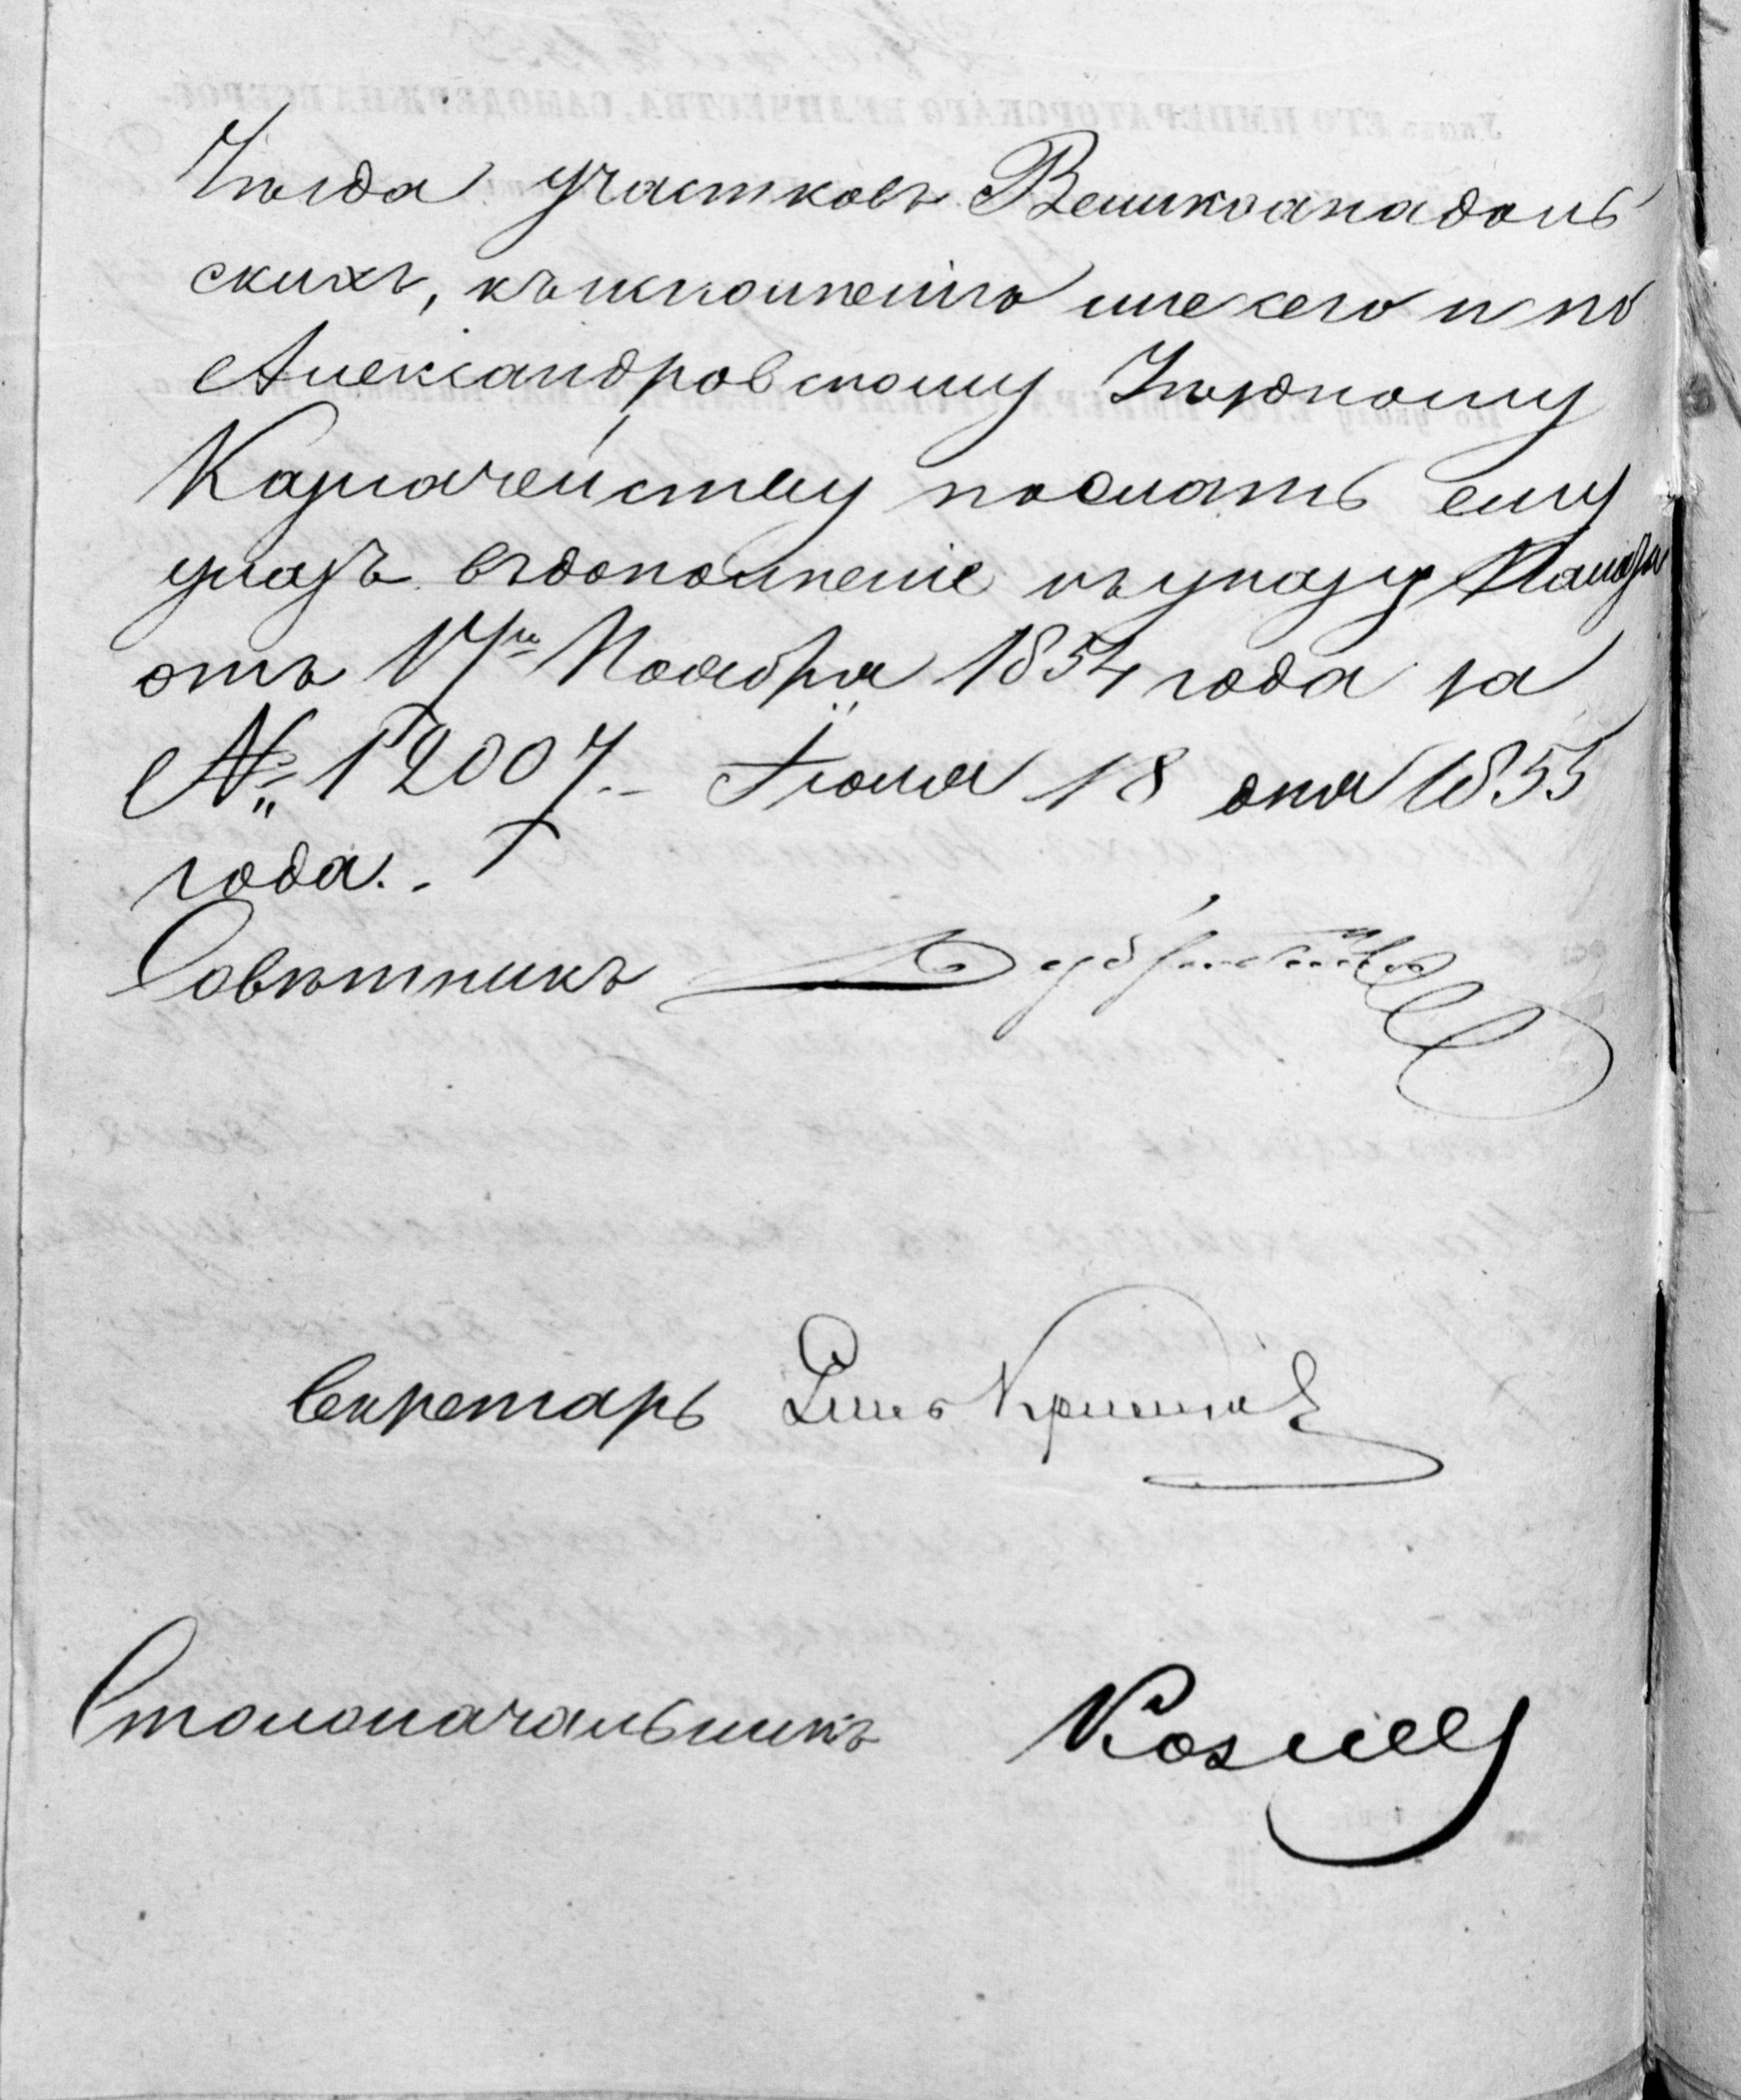 Уѣзда участковъ Великоанадоль
скихъ, къ исполненію же сего и по
Александровскому Уѣздному
Казначейству послать ему
указъ въ дополненіе къ указу Палаты
отъ 17го Ноября 1854 года за
№ 12007. Іюня 18 дня 1855
года.
Совѣтникъ
Секретарь
Столоначальникъ